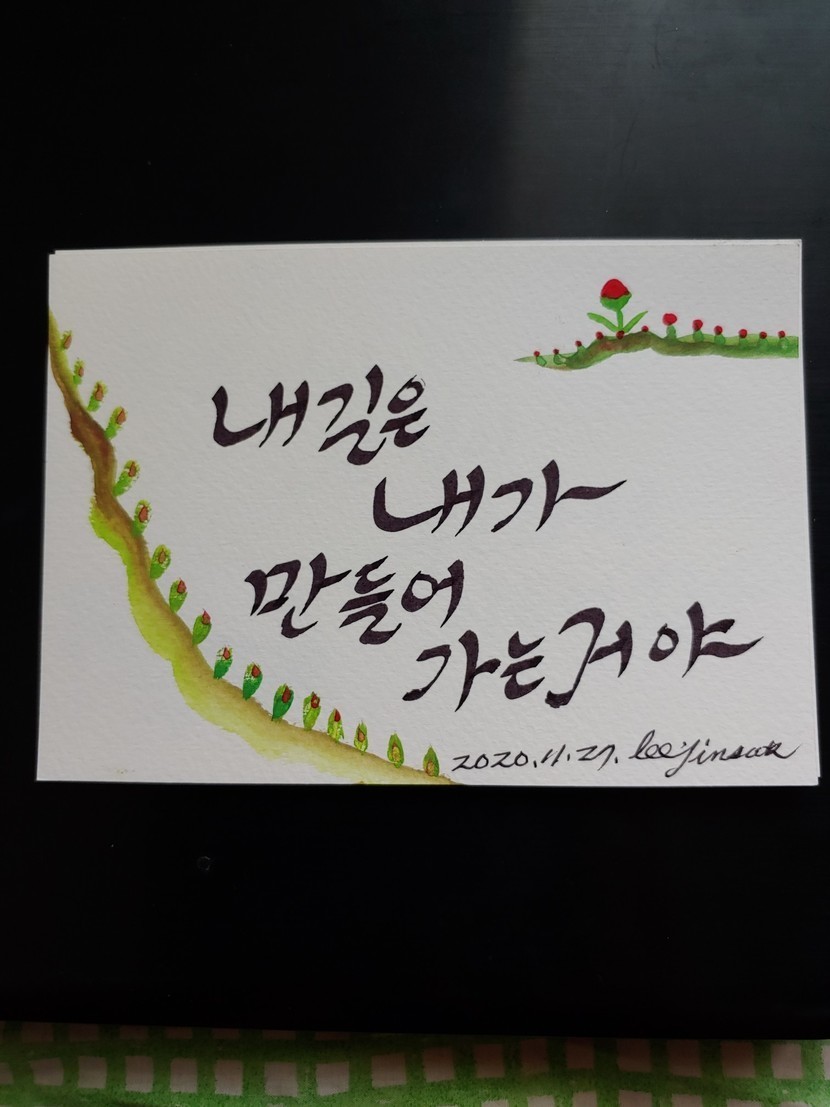 내길은
내가
만들어
가는거야
2020.11.27. leeyinsook